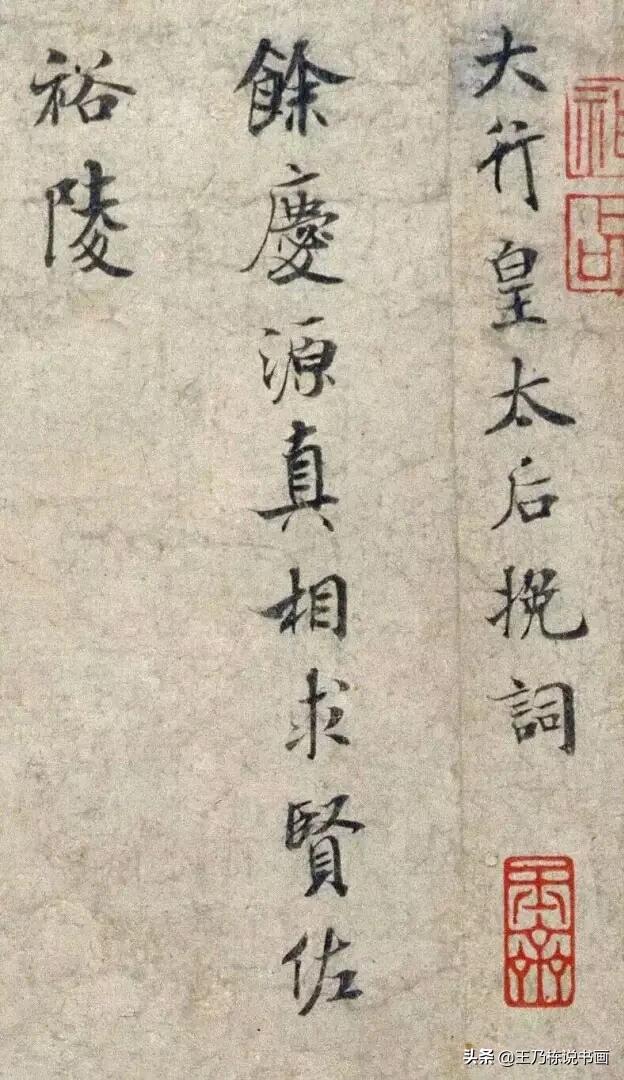 大行皇太后挽詞
餘慶源真相求賢佐
裕陵
头条 @王乃栋说书画